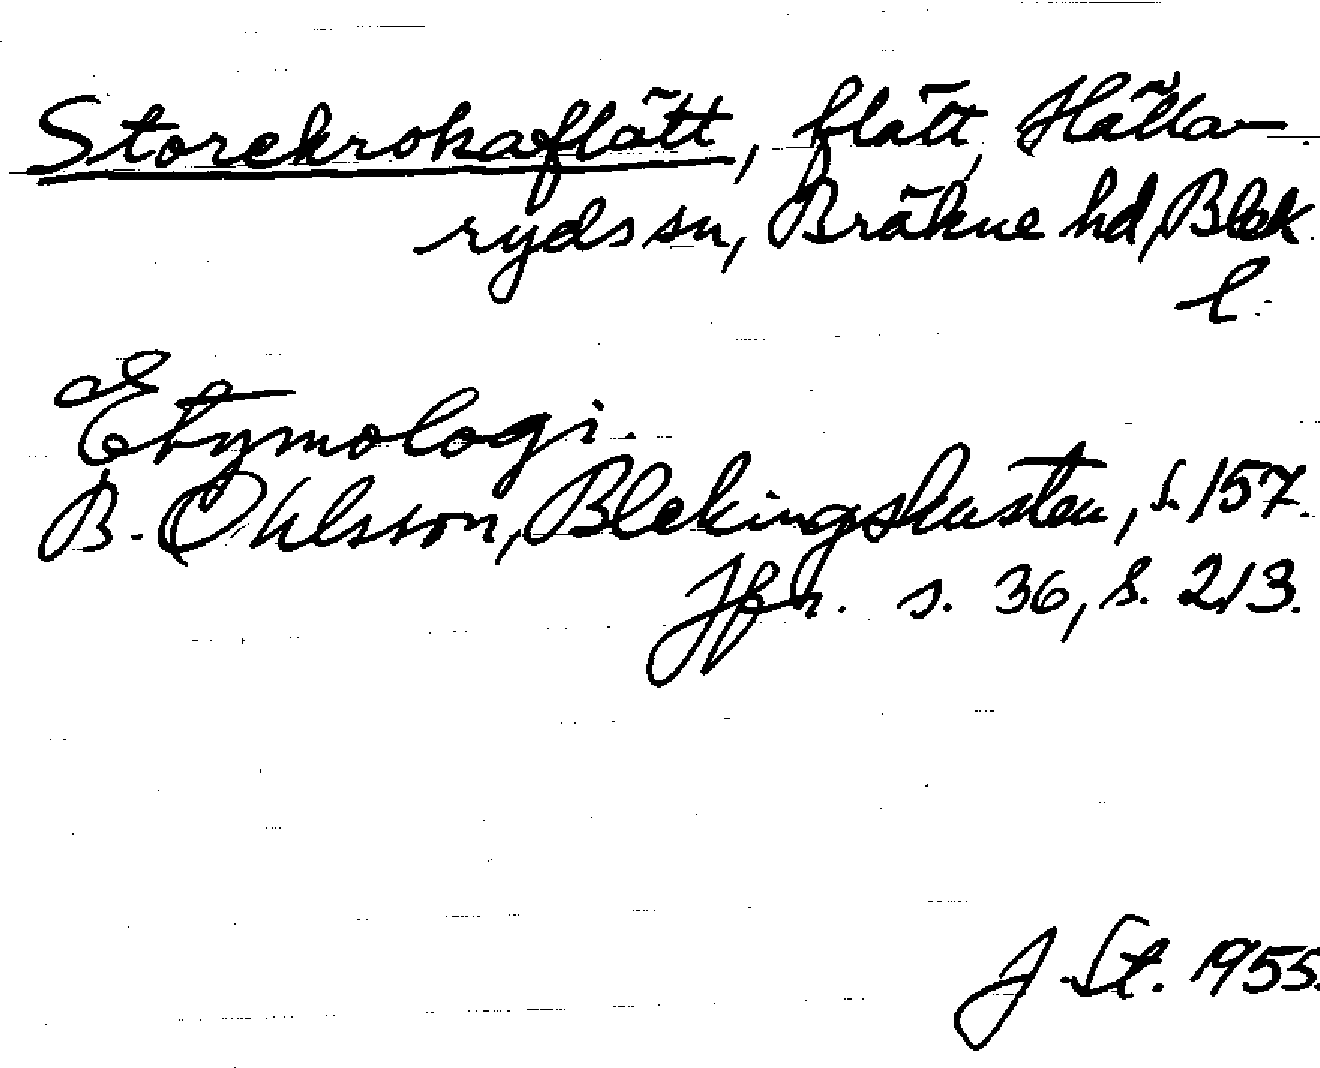 Storekrokaflätt, flätt, Hälla-
ryds sn, Bräkne hd, Blek.
l.
Etymologi.
B. Ohlsson, Blekingskusten, s. 157.
Jfr. s. 36, s. 213.
J St. 1955.